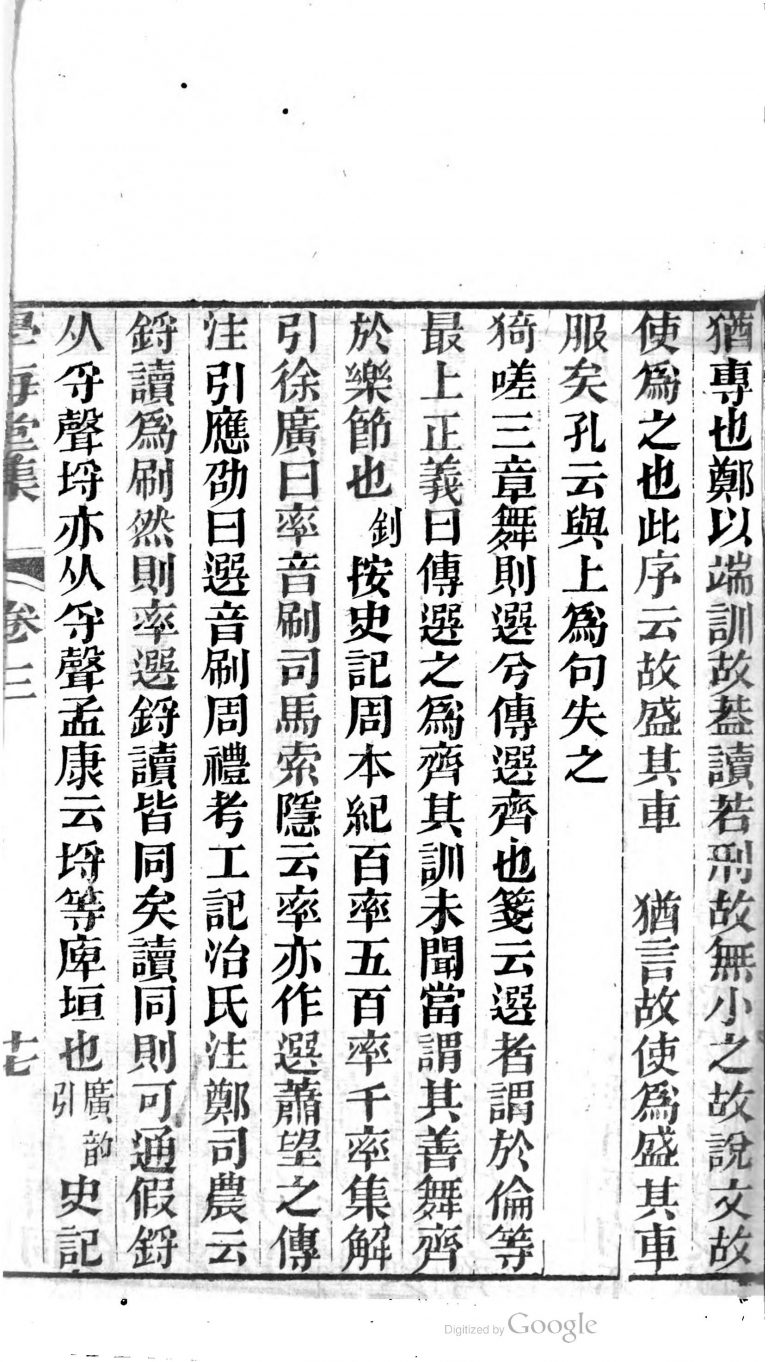 猶專也鄭以端訓故葢讀若刑故無小之故說文故
使爲之也此序云故盛其車　猶言故使爲盛其車
服矣孔云與上爲句失之
猗嗟三章舞則選兮傳選齊也箋云選者謂於倫等
最上正義曰傳選之爲齊其訓未聞當謂其善舞齊
於樂節也釗按史記周本紀百率五百率千率集解
引徐廣曰率音刷司馬索隱云率亦作選蕭望之傳
注引應劭曰選音刷周禮考工記冶氏注鄭司農云
鋝讀爲刷然則率選鋝讀皆同矣讀同則可通假鋝
从寽聲埒亦从寽聲孟康云埒等庳垣也廣韵引史記
學海堂集　卷三　十七
Digitized by Google